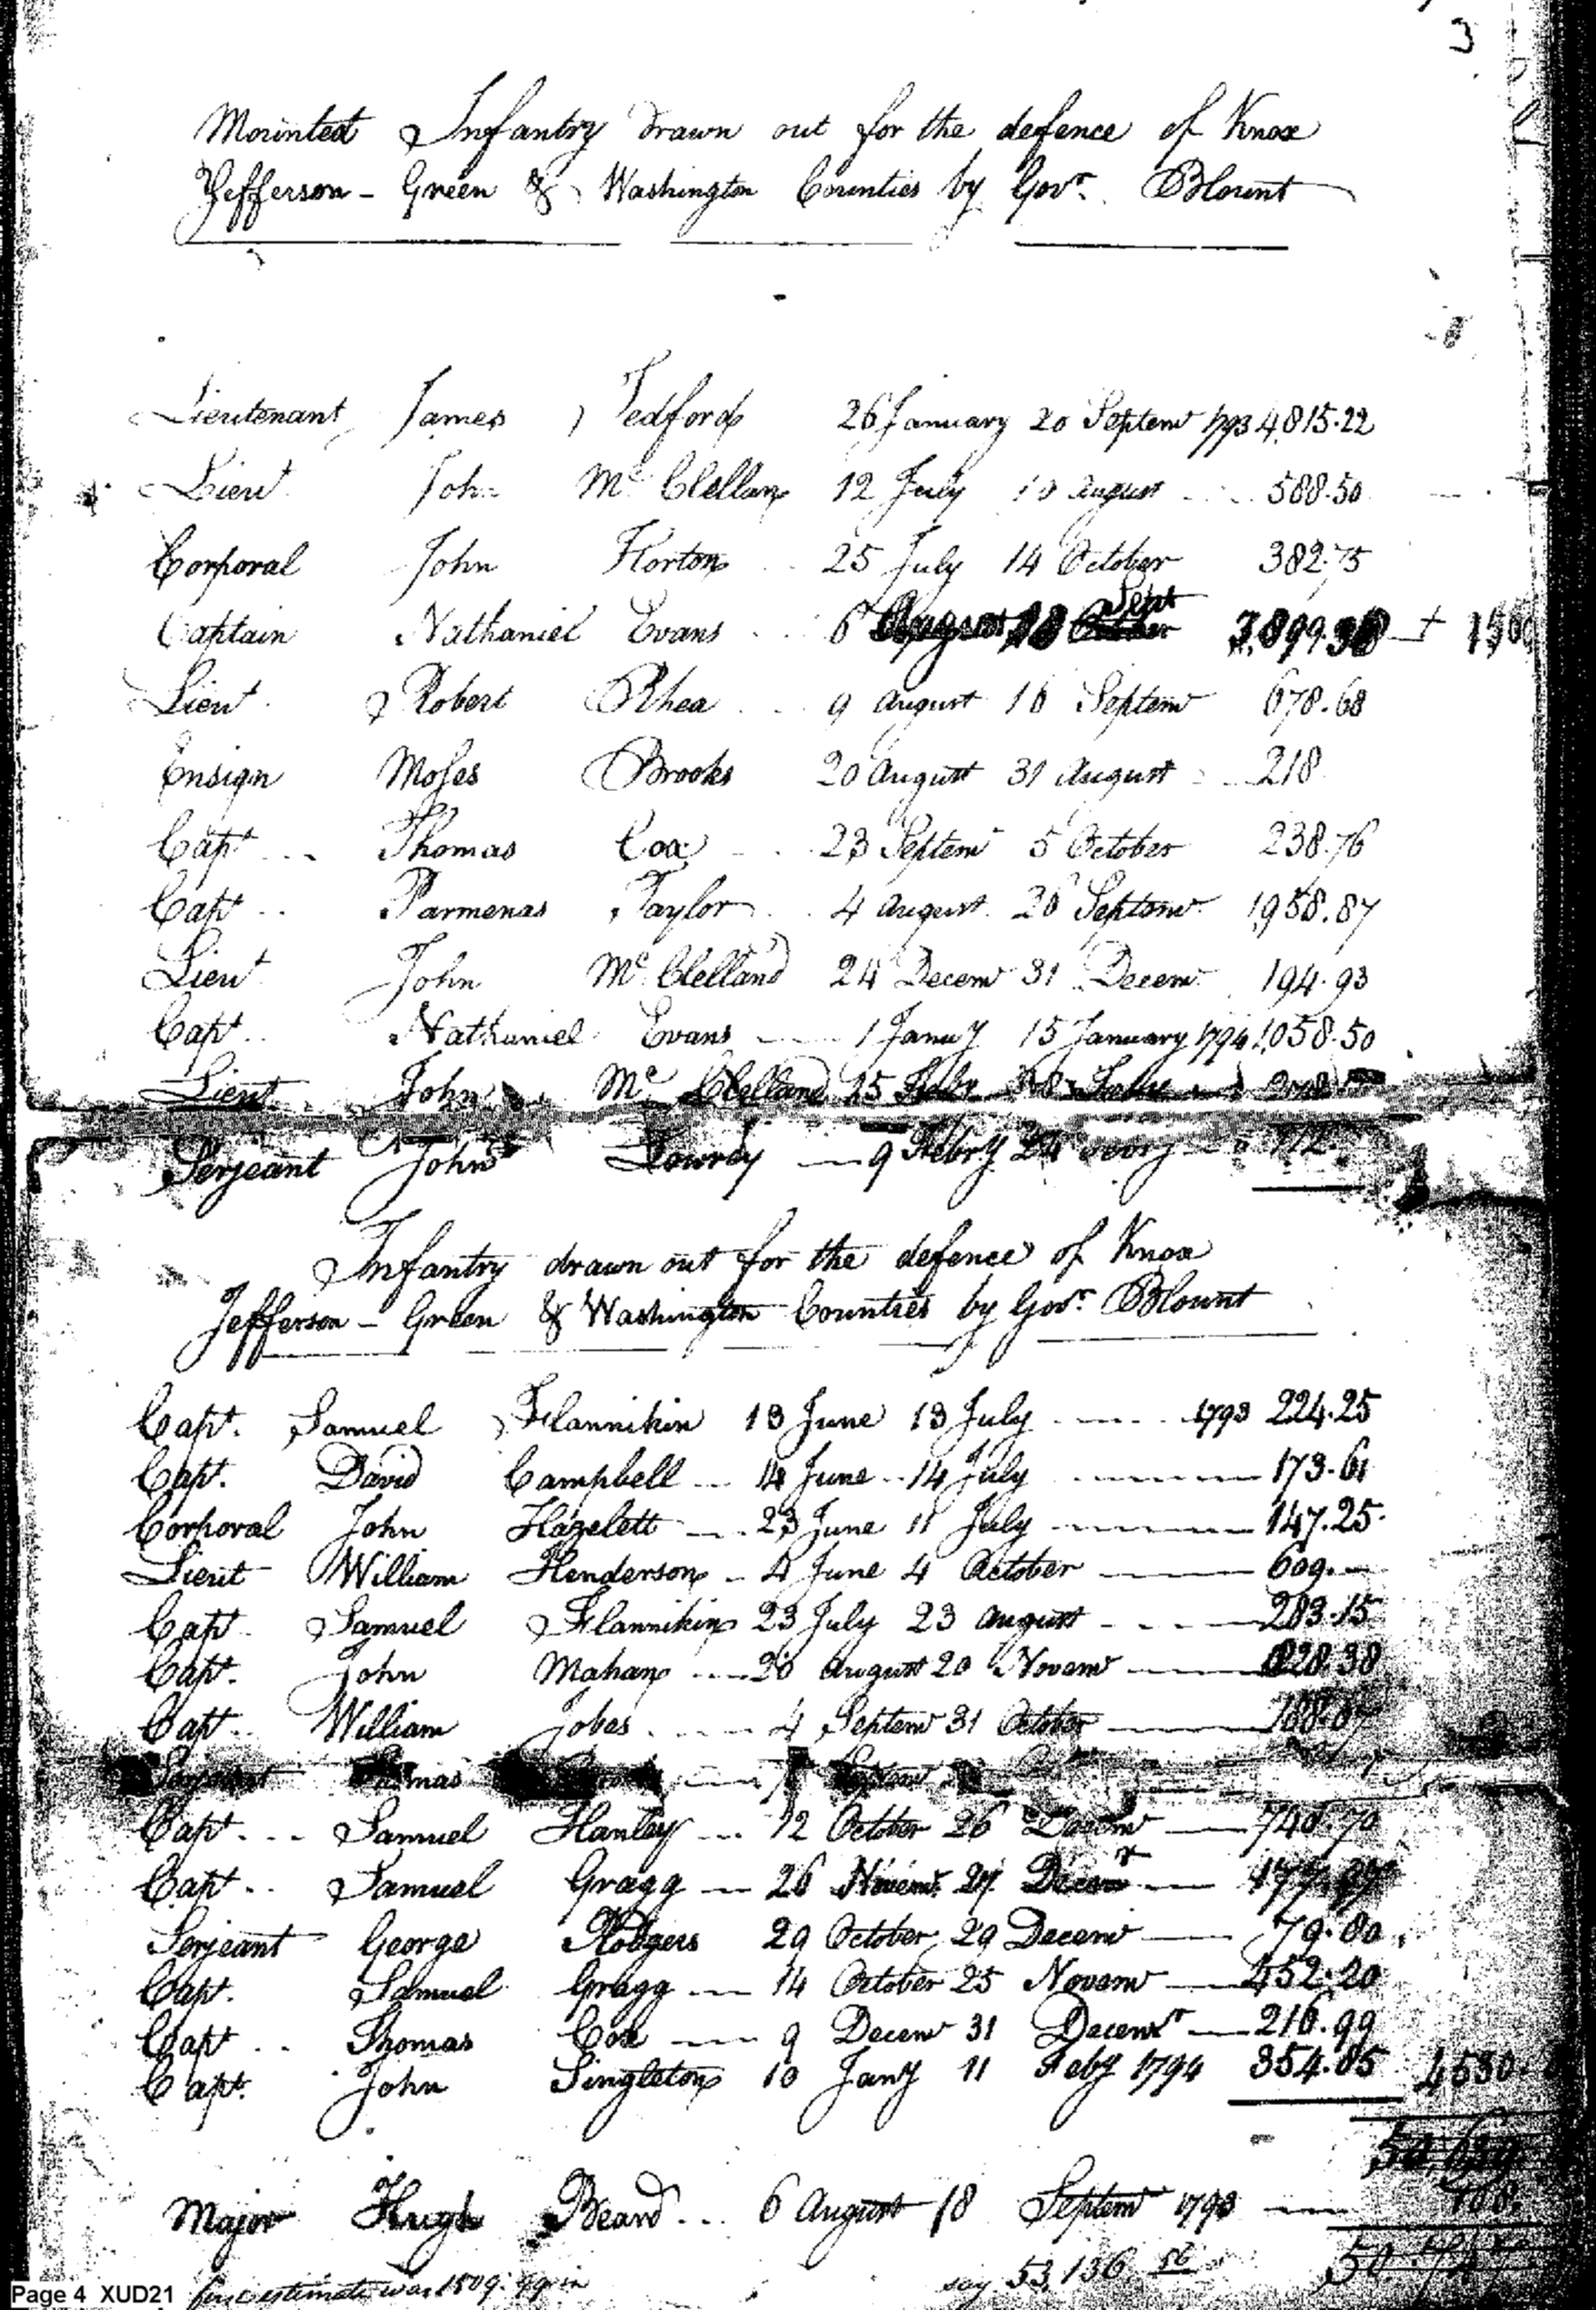 3
Mounted Infantry drawn out for the defence of Knox
Jefferson - Green & Washington Counties by Govr. Blount
Lieutenant James Tedford 26 January 20 Septemr 1793 4,815.22
Lieut. John McClellan 12 July 10 August 588.50
Corporal John Horton 25 July 14 October 382.75
Captain Nathaniel Evans 6 August 18 Sept
Lieut. Robert Rhea 9 August 16 Septemr 678.68
Ensign Moses Brooks 20 August 31 August 218
Capt Thomas Cox 23 Septemr 5 October 238.76
Capt Parmenas Taylor 4 August 20 Septemr 1,958.87
Lieut John McClelland 24 Decemr 31 Decemr 194.93
Capt Nathaniel Evans 1 Janu'y 15 January 1794 1,058.50
Lieut John McClelland 25
Serjeant John Lowrey 9 Feb'ry 24
Infantry drawn out for the defence of Knox
Jefferson - Green & Washington Counties by Govr. Blount
Capt. Samuel Flannikin 13 June 13 July 1793 224.25
Capt. David Campbell 14 June 14 July 173.61
Corporal John Hazelett 23 June 11 July 147.25
Lieut William Henderson 4 June 4 October 609.
Capt Samuel Flannikin 23 July 23 August 283.15
Capt. John Mahan 20 August 20 Novemr 828.38
Capt William Jobes 4 Septemr 31 October
Serjeant Thomas
Capt Samuel Hanley 12 October 26 Decemr 740.70
Capt Samuel Gragg 26 Novemr 27 Decemr
Serjeant George Rodgers 29 October 29 Decemr 79.80
Capt. Samuel Gragg 14 October 25 Novemr 452.20
Capt Thomas Cox 9 Decemr 31 Decemr 216.99
Capt. John Singleton 10 Jan'y 11 Feb'y 1794 354.05 4530.
Major Hugh Beard 6 August 18 Septemr 1793
say 53,136
Page 4 XUD21 estimate was 1509.99